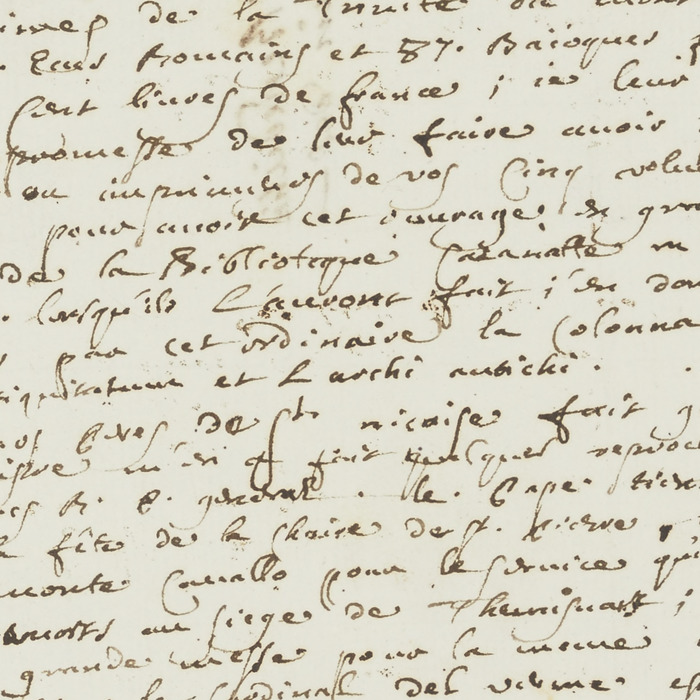 de la Trinité du mont
Ecus Romains et 87. Baioques
Cent livres de france ; ie leur
promesse de leur faire avoir
ou imprimeurs de vos Cinq volu
pour avoir cet ouvrage, en gra
de la Biblioteque Casanatte
lorsqu'ils L'auront fait j'en don
par cet ordinaire la Colonna
et L archi antichi.
nos peres de st nicaise fait
m'en a fait quelques reproc
R. P. general. le Pape tien
fête de la Chaire de st. pierre
monte Cavallo pour le service qu'
morts au siege de Themisvart ;
grande messe pour la meme
Cardinal del